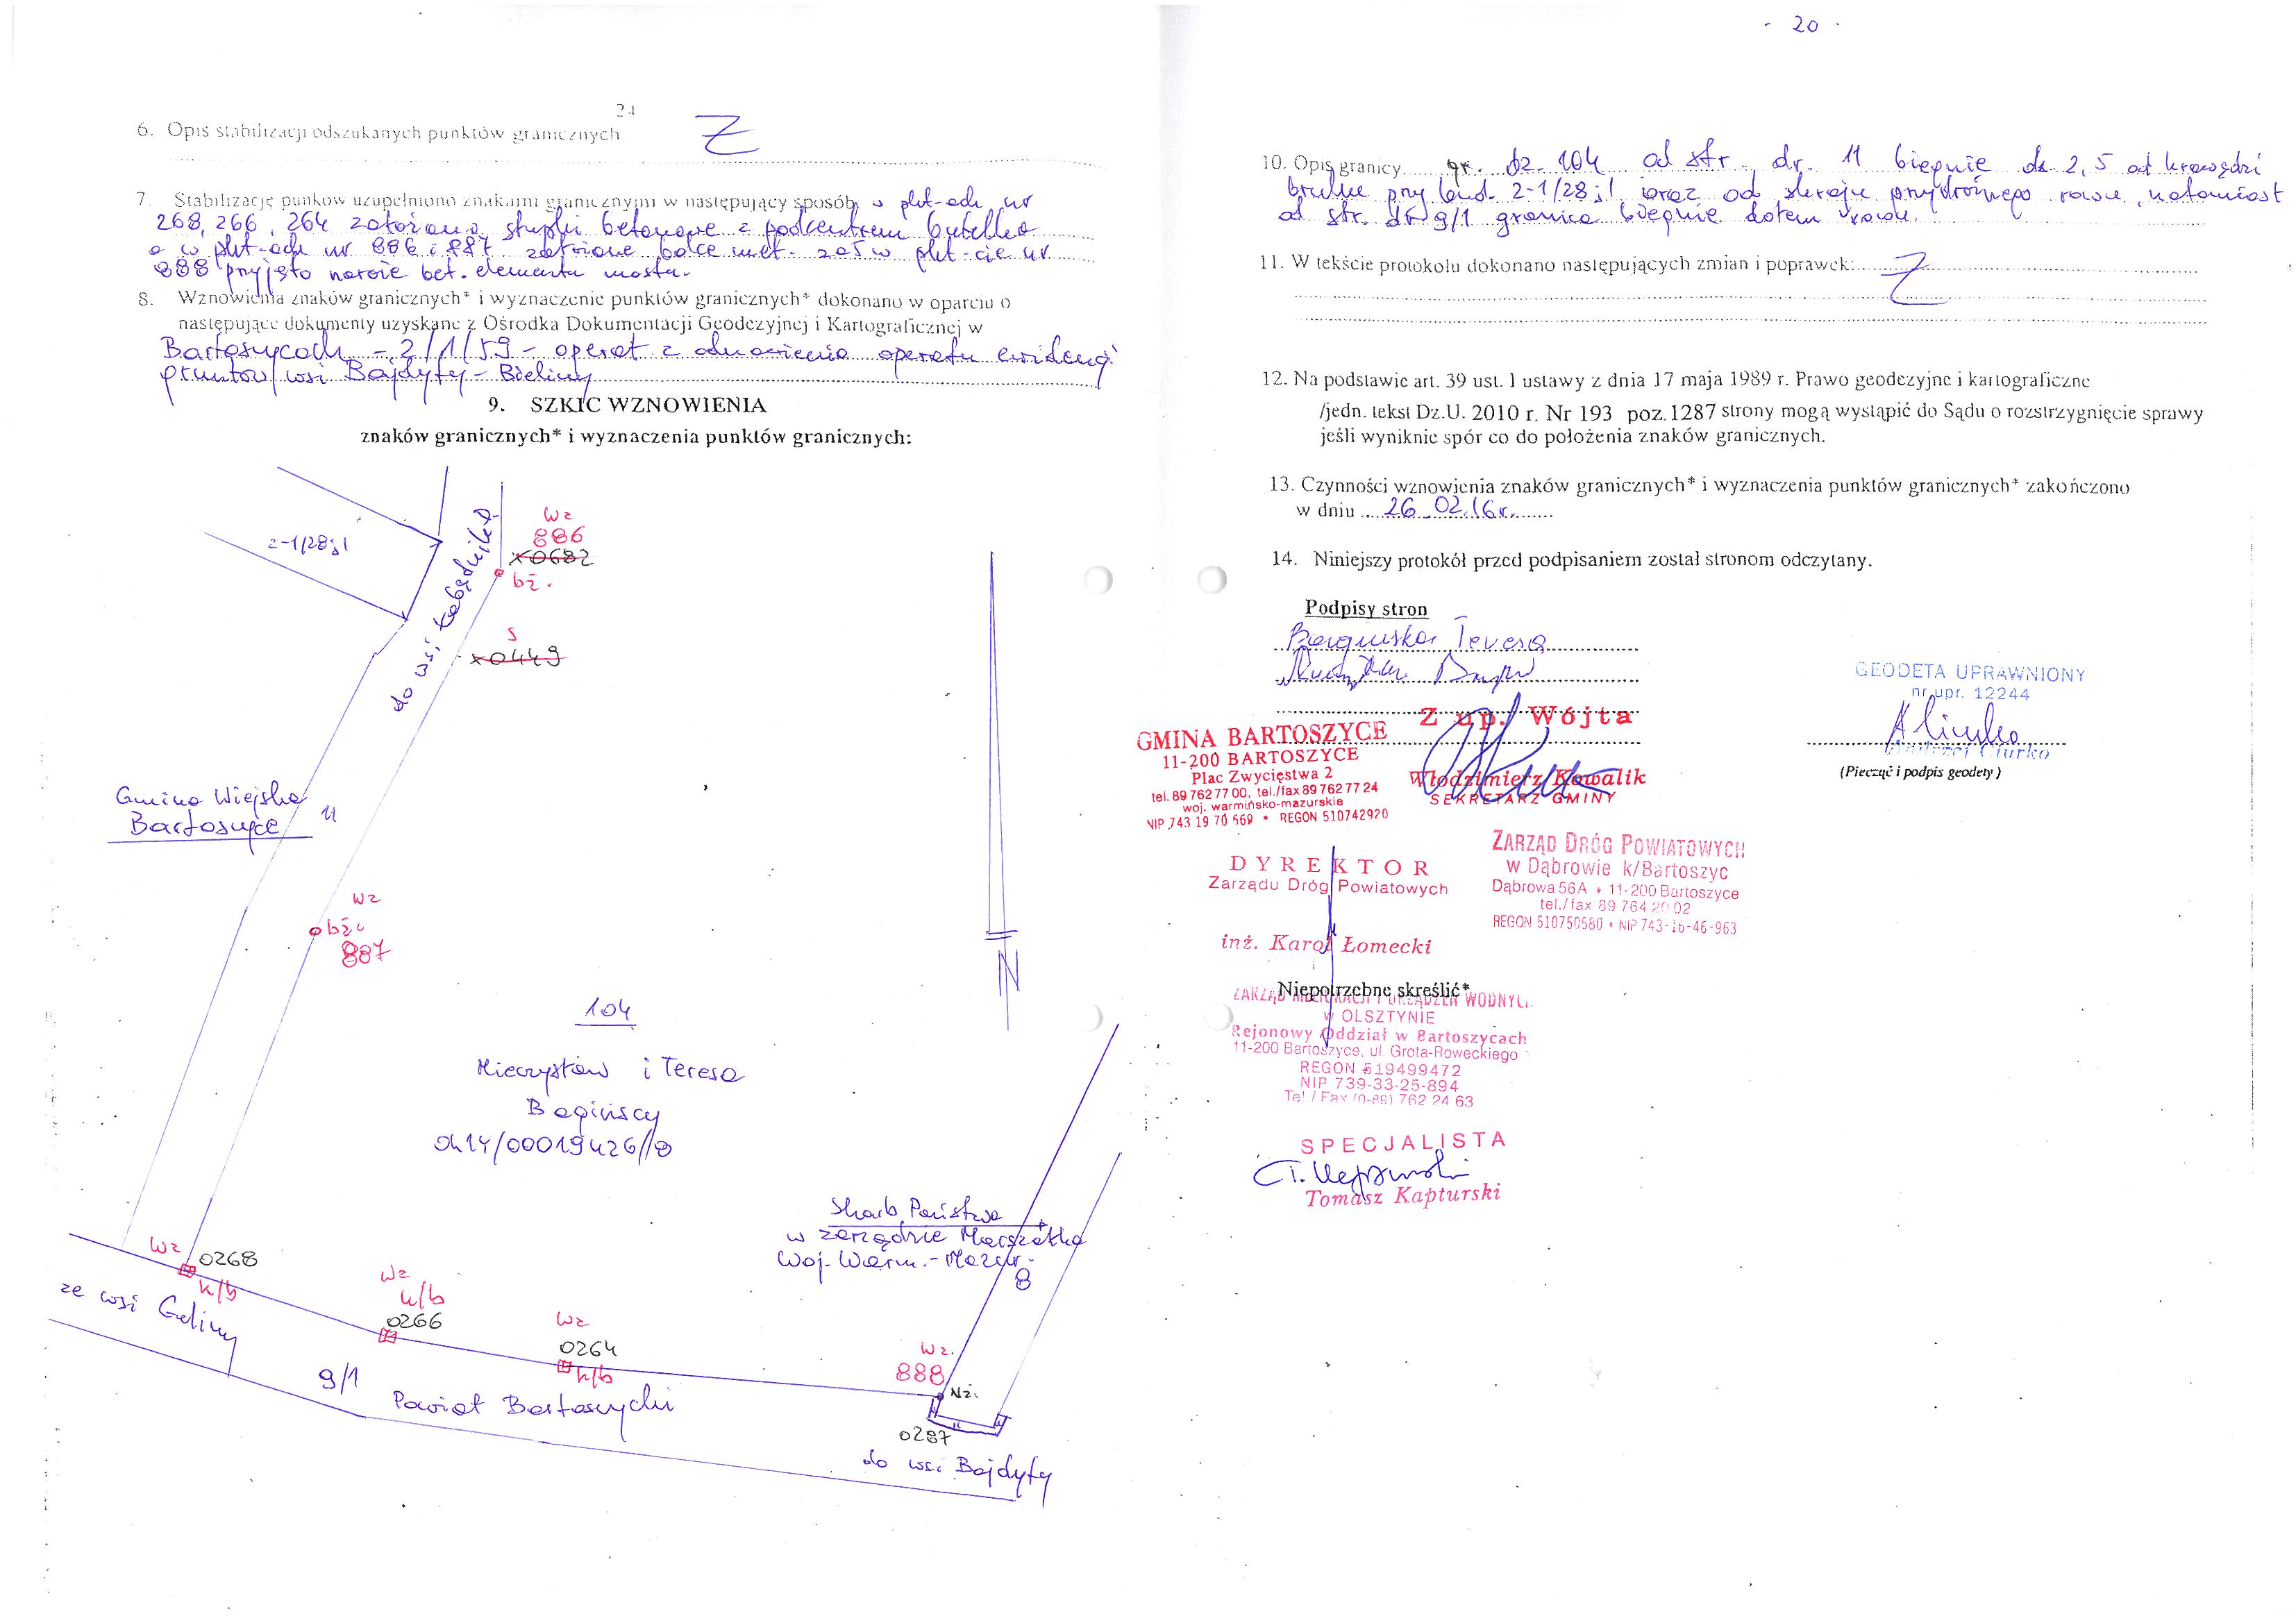 - 20 -
24
6. Opis stabilizacji odszukanych punktów granicznych
7. Stabilizację punków uzupełniono znakami granicznymi w następujący sposób: w pkt-ach nr
268, 266, 264 założono słupki betonowe z podcentrem butelka
a w pkt-ach nr 886 i 887 założone bolce met. zaś w pkt-cie nr
888 przyjęto naroże bet. elementu mostu.
8. Wznowienia znaków granicznych* i wyznaczenie punktów granicznych* dokonano w oparciu o
następujące dokumenty uzyskane z Ośrodka Dokumentacji Geodezyjnej i Kartograficznej w
Bartoszycach - 2/1/59 - operat z odnowienia operatu ewidencji
gruntów wsi Bajdyty - Bieliny
9. SZKIC WZNOWIENIA
znaków granicznych* i wyznaczenia punktów granicznych:
2-1/28;l
do wsi
Wz
886
x0682
bż.
S
x0449
Gmina Wiejska
Bartoszyce
11
Wz
bż.
887
104
Mieczysław i Teresa
Bagińscy
OL1Y/00019426/8
Skarb Państwa
w zarządzie Marszałka
Woj. Warm.-Mazur.
8
Wz
0268
k/b
Wz
k/b
0266
Wz
0264
k/b
Wz.
888
Nż.
0287
ze wsi Galiny
9/1
Powiat Bartoszycki
do wsi Bajdyty
10. Opis granicy gr. dz. 104 od str. dr. 11 biegnie ok. 2,5 od krawędzi
bruku przy bud. 2-1/28;l oraz od skraju przydrożnego rowu, natomiast
od str. dr 9/1 granica biegnie dołem rowu.
11. W tekście protokołu dokonano następujących zmian i poprawek:
12. Na podstawie art. 39 ust. 1 ustawy z dnia 17 maja 1989 r. Prawo geodezyjne i kartograficzne
/jedn. tekst Dz.U. 2010 r. Nr 193 poz.1287 strony mogą wystąpić do Sądu o rozstrzygnięcie sprawy
jeśli wyniknie spór co do położenia znaków granicznych.
13. Czynności wznowienia znaków granicznych* i wyznaczenia punktów granicznych* zakończono
w dniu 26.02.16r.
14. Niniejszy protokół przed podpisaniem został stronom odczytany.
Podpisy stron
Teresa
GEODETA UPRAWNIONY
nr upr. 12244
Ciurko
(Pieczęć i podpis geodety)
Z up. Wójta
Włodzimierz Kowalik
SEKRETARZ GMINY
GMINA BARTOSZYCE
11-200 BARTOSZYCE
Plac Zwycięstwa 2
tel. 89 762 77 00, tel./fax 89 762 77 24
woj. warmińsko-mazurskie
NIP 743 19 70 569 • REGON 510742920
DYREKTOR
Zarządu Dróg Powiatowych
inż. Karol Łomecki
ZARZĄD DRÓG POWIATOWYCH
w Dąbrowie k/Bartoszyc
Dąbrowa 56A • 11-200 Bartoszyce
tel./fax 89 764 20 02
REGON 510750580 • NIP 743-16-46-963
Niepotrzebne skreślić*
ZARZĄD MELIORACJI I URZĄDZEŃ WODNYCH
w OLSZTYNIE
Rejonowy Oddział w Bartoszycach
11-200 Bartoszyce, ul. Grota-Roweckiego
REGON 519499472
NIP 739-33-25-894
Tel / Fax (0-89) 762 24 63
SPECJALISTA
Tomasz Kapturski